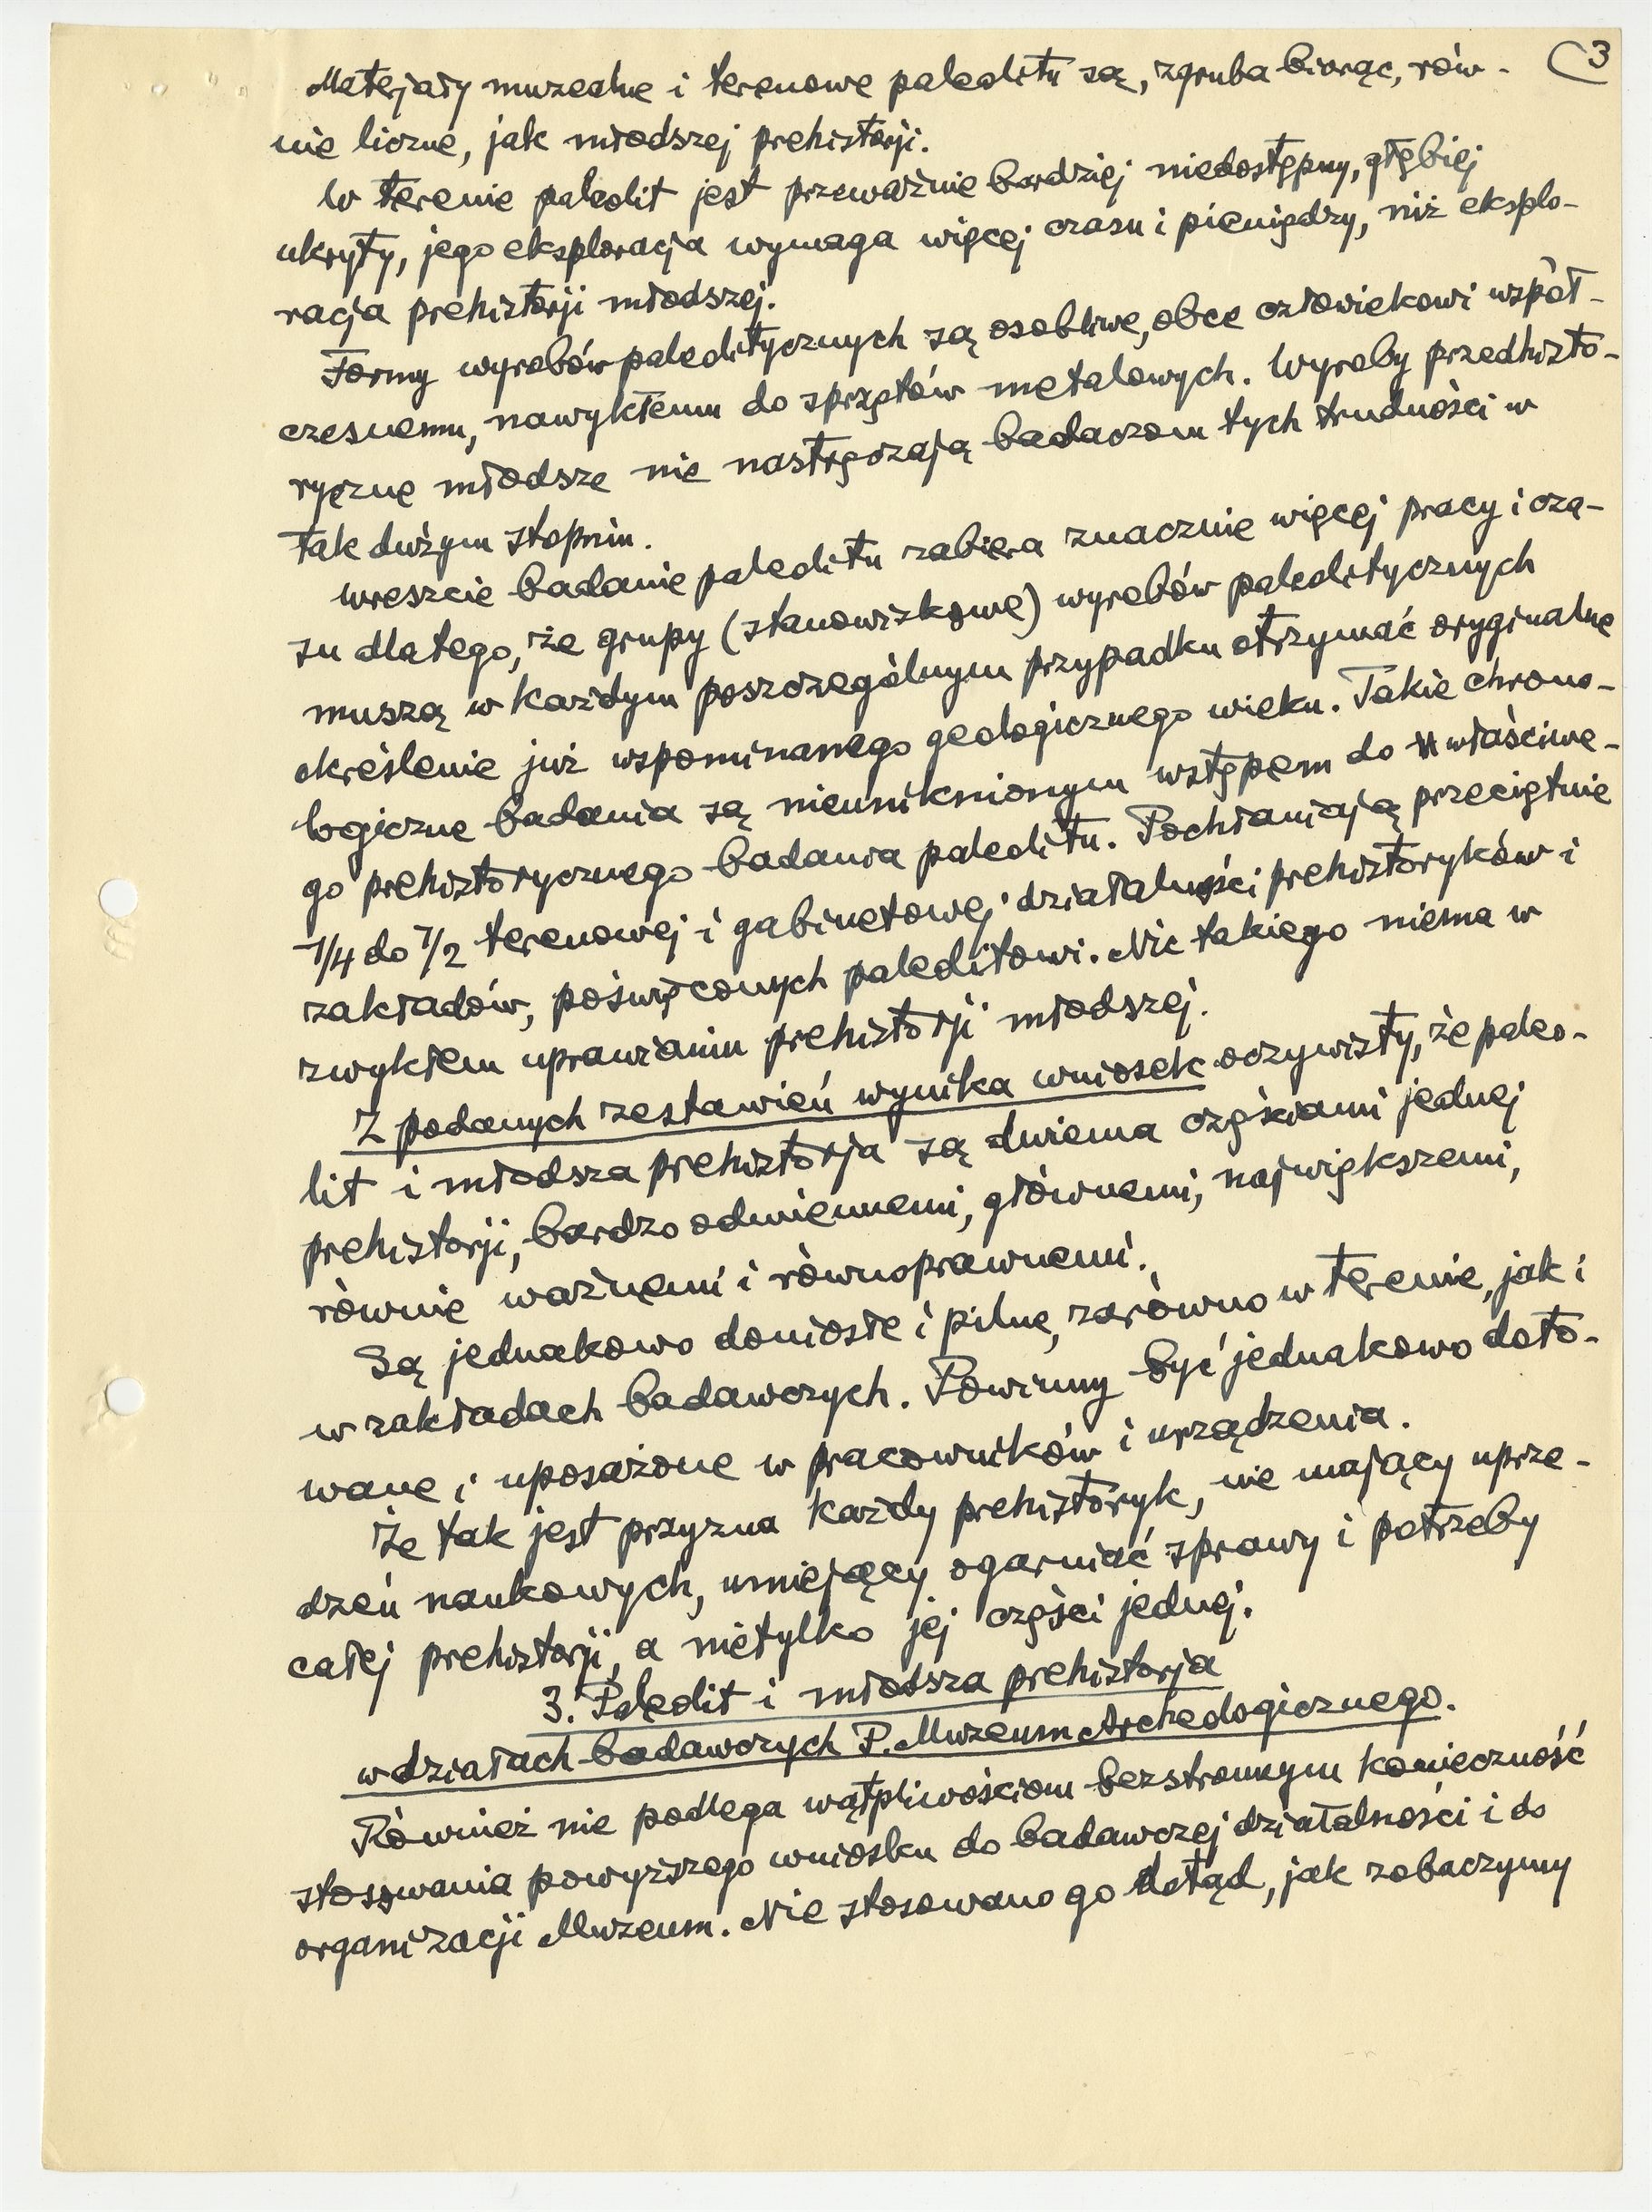 3
Materjały muzealne i terenowe paleolitu są, zgruba biorąc, rów-
nie liczne, jak młodszej prehistorji.
W terenie paleolit jest przeważnie bardziej niedostępny, głębiej
ukryty, jego eksploracja wymaga więcej czasu i pieniędzy, niż eksplo-
racja prehistorji młodszej.
Formy wyrobów paleolitycznych są osobliwe, obce człowiekowi współ-
czesnemu, nawykłemu do sprzętów metalowych. Wyroby przedhisto-
ryczne młodsze nie nastręczają badaczom tych trudności w
tak dużym stopniu.
Wreszcie badanie paleolitu zabiera znacznie więcej pracy i cza-
su dlatego, że grupy (stanowiskowe) wyrobów paleolitycznych
muszą w każdym poszczególnym przypadku otrzymać oryginalne
określenie już wspominanego geologicznego wieku. Takie chrono-
logiczne badania są nieuniknionym wstępem do właściwe-
go prehistorycznego badania paleolitu. Pochłaniają przeciętnie
1/4 do 1/2 terenowej i gabinetowej działalności prehistoryków i
zakładów, poświęconych paleolitowi. Nic takiego niema w
zwykłem uprawianiu prehistorji młodszej.
Z podanych zestawień wynika wniosek oczywisty, że paleo-
lit i młodsza prehistorja są dwiema częściami jednej
prehistorji, bardzo odmiennemi, głównemi, największemi,
równie ważnemi i równoprawnemi.
Są jednakowo doniosłe i pilne, zarówno w terenie, jak i
w zakładach badawczych. Powinny być jednakowo doto-
wane i uposażone w pracowników i urządzenia.
Że tak jest przyzna każdy prehistoryk, nie mający uprze-
dzeń naukowych, umiejący ogarniać sprawy i potrzeby
całej prehistorji, a nietylko jej części jednej.
3. Paleolit i młodsza prehistorja
w działach badawczych P. Muzeum Archeologicznego.
Również nie podlega wątpliwościom bezstronnym konieczność
stosowania powyższego wniosku do badawczej działalności i do
organizacji Muzeum. Nie stosowano go dotąd, jak zobaczymy